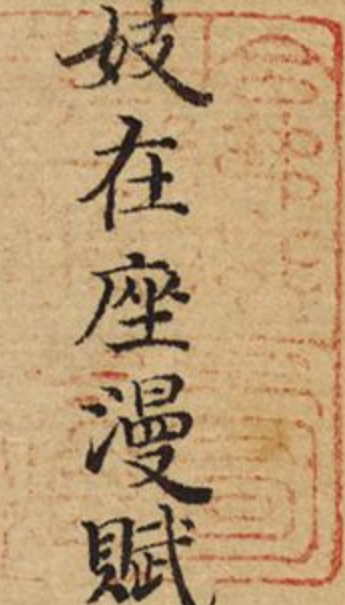 妓在座漫賦